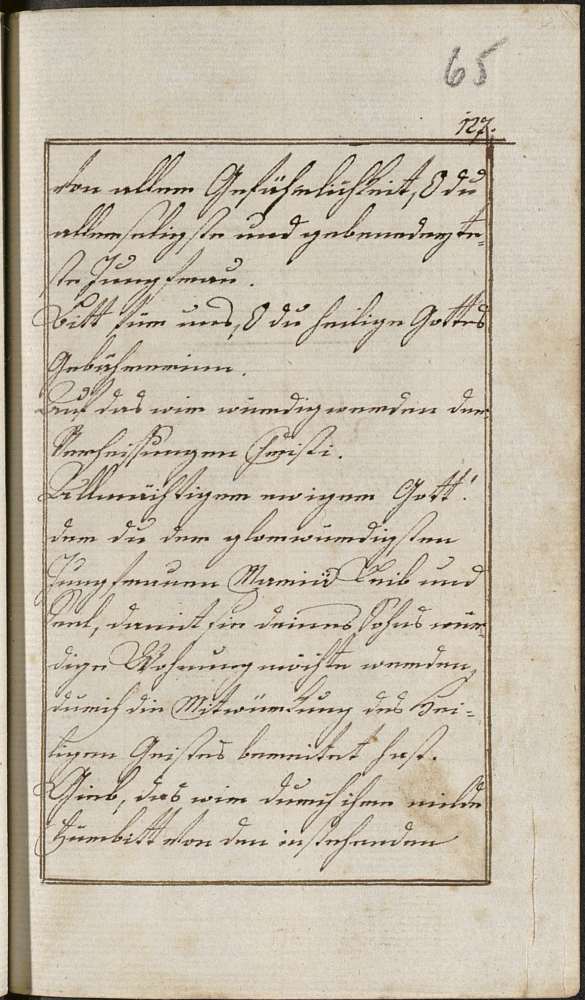 65
127.
von allem Gefährlichkeit, O du
allerseligste und gebenedeyte=
ste Jungfrau.
Bitt für uns, O du heilige Gottes
Gebährerinn.
Auf das wir würdig werden der
Verheissungen Christi.
Allmächtiger ewiger Gott!
der du der glorwürdigsten
Jungfrauen Mariä Leib und
Seel, damit sie deines Sohns wür=
dige Wohnung möchte werden,
durch die Mitwürkung des Hei=
ligen Geistes bereitet hast.
Gieb, das wir durch ihre milde
Fürbitt von den instehenden